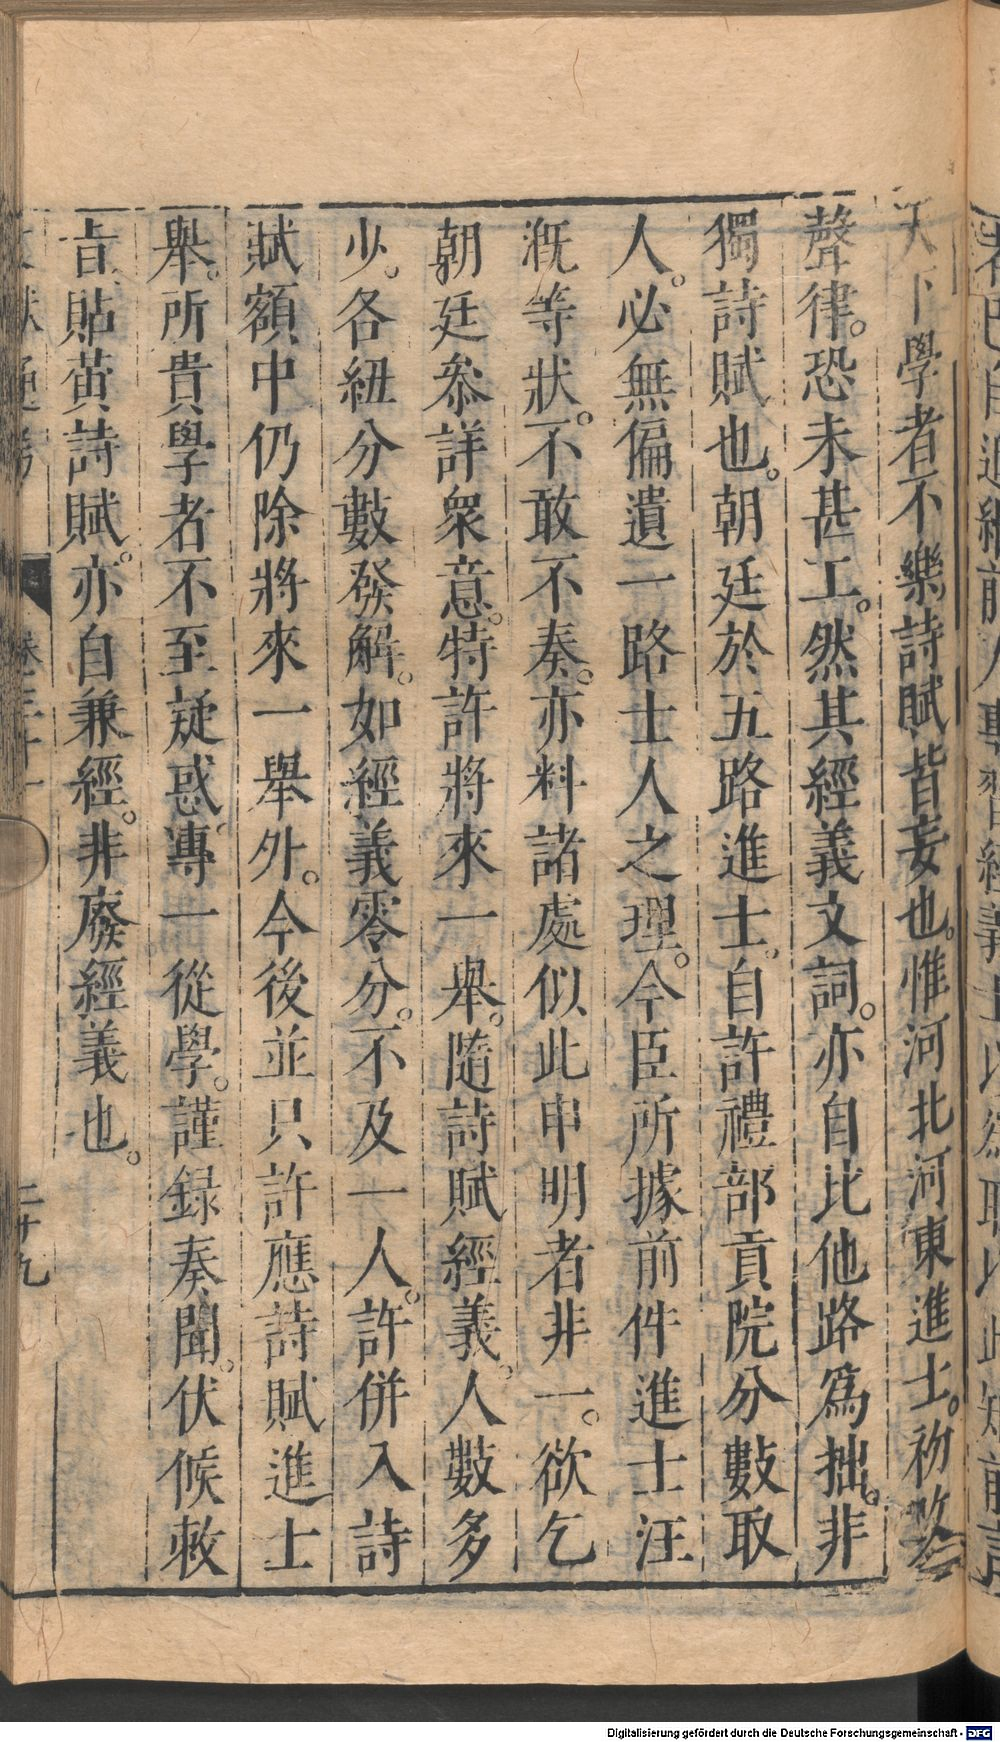 天下學者不樂詩賦皆妄也。惟河北河東進士。初
聲律。恐未甚工。然其經義文詞。亦自比他路爲拙。非
獨詩賦也。朝廷於五路進士。自許禮部貢院分數取
人。必無偏遺一路士人之理。今臣所據前件進士汪
溉等狀。不敢不奏。亦料諸處似此申明者非一。欲乞
朝廷叅詳衆意。特許將來一舉。隨詩賦經義。人數多
少。各紐分數發解。如經義零分。不及一人。許併入詩
賦額中仍除將來一舉外。今後並只許應詩賦進士
舉。所貴學者不至疑惑。專一從學。謹録奏聞。伏候敕
旨。貼黃詩賦。亦自兼經。非廢經義也。
卷三十一
二十九
Digitalisierung gefördert durch die Deutsche Forschungsgemeinschaft - DFG